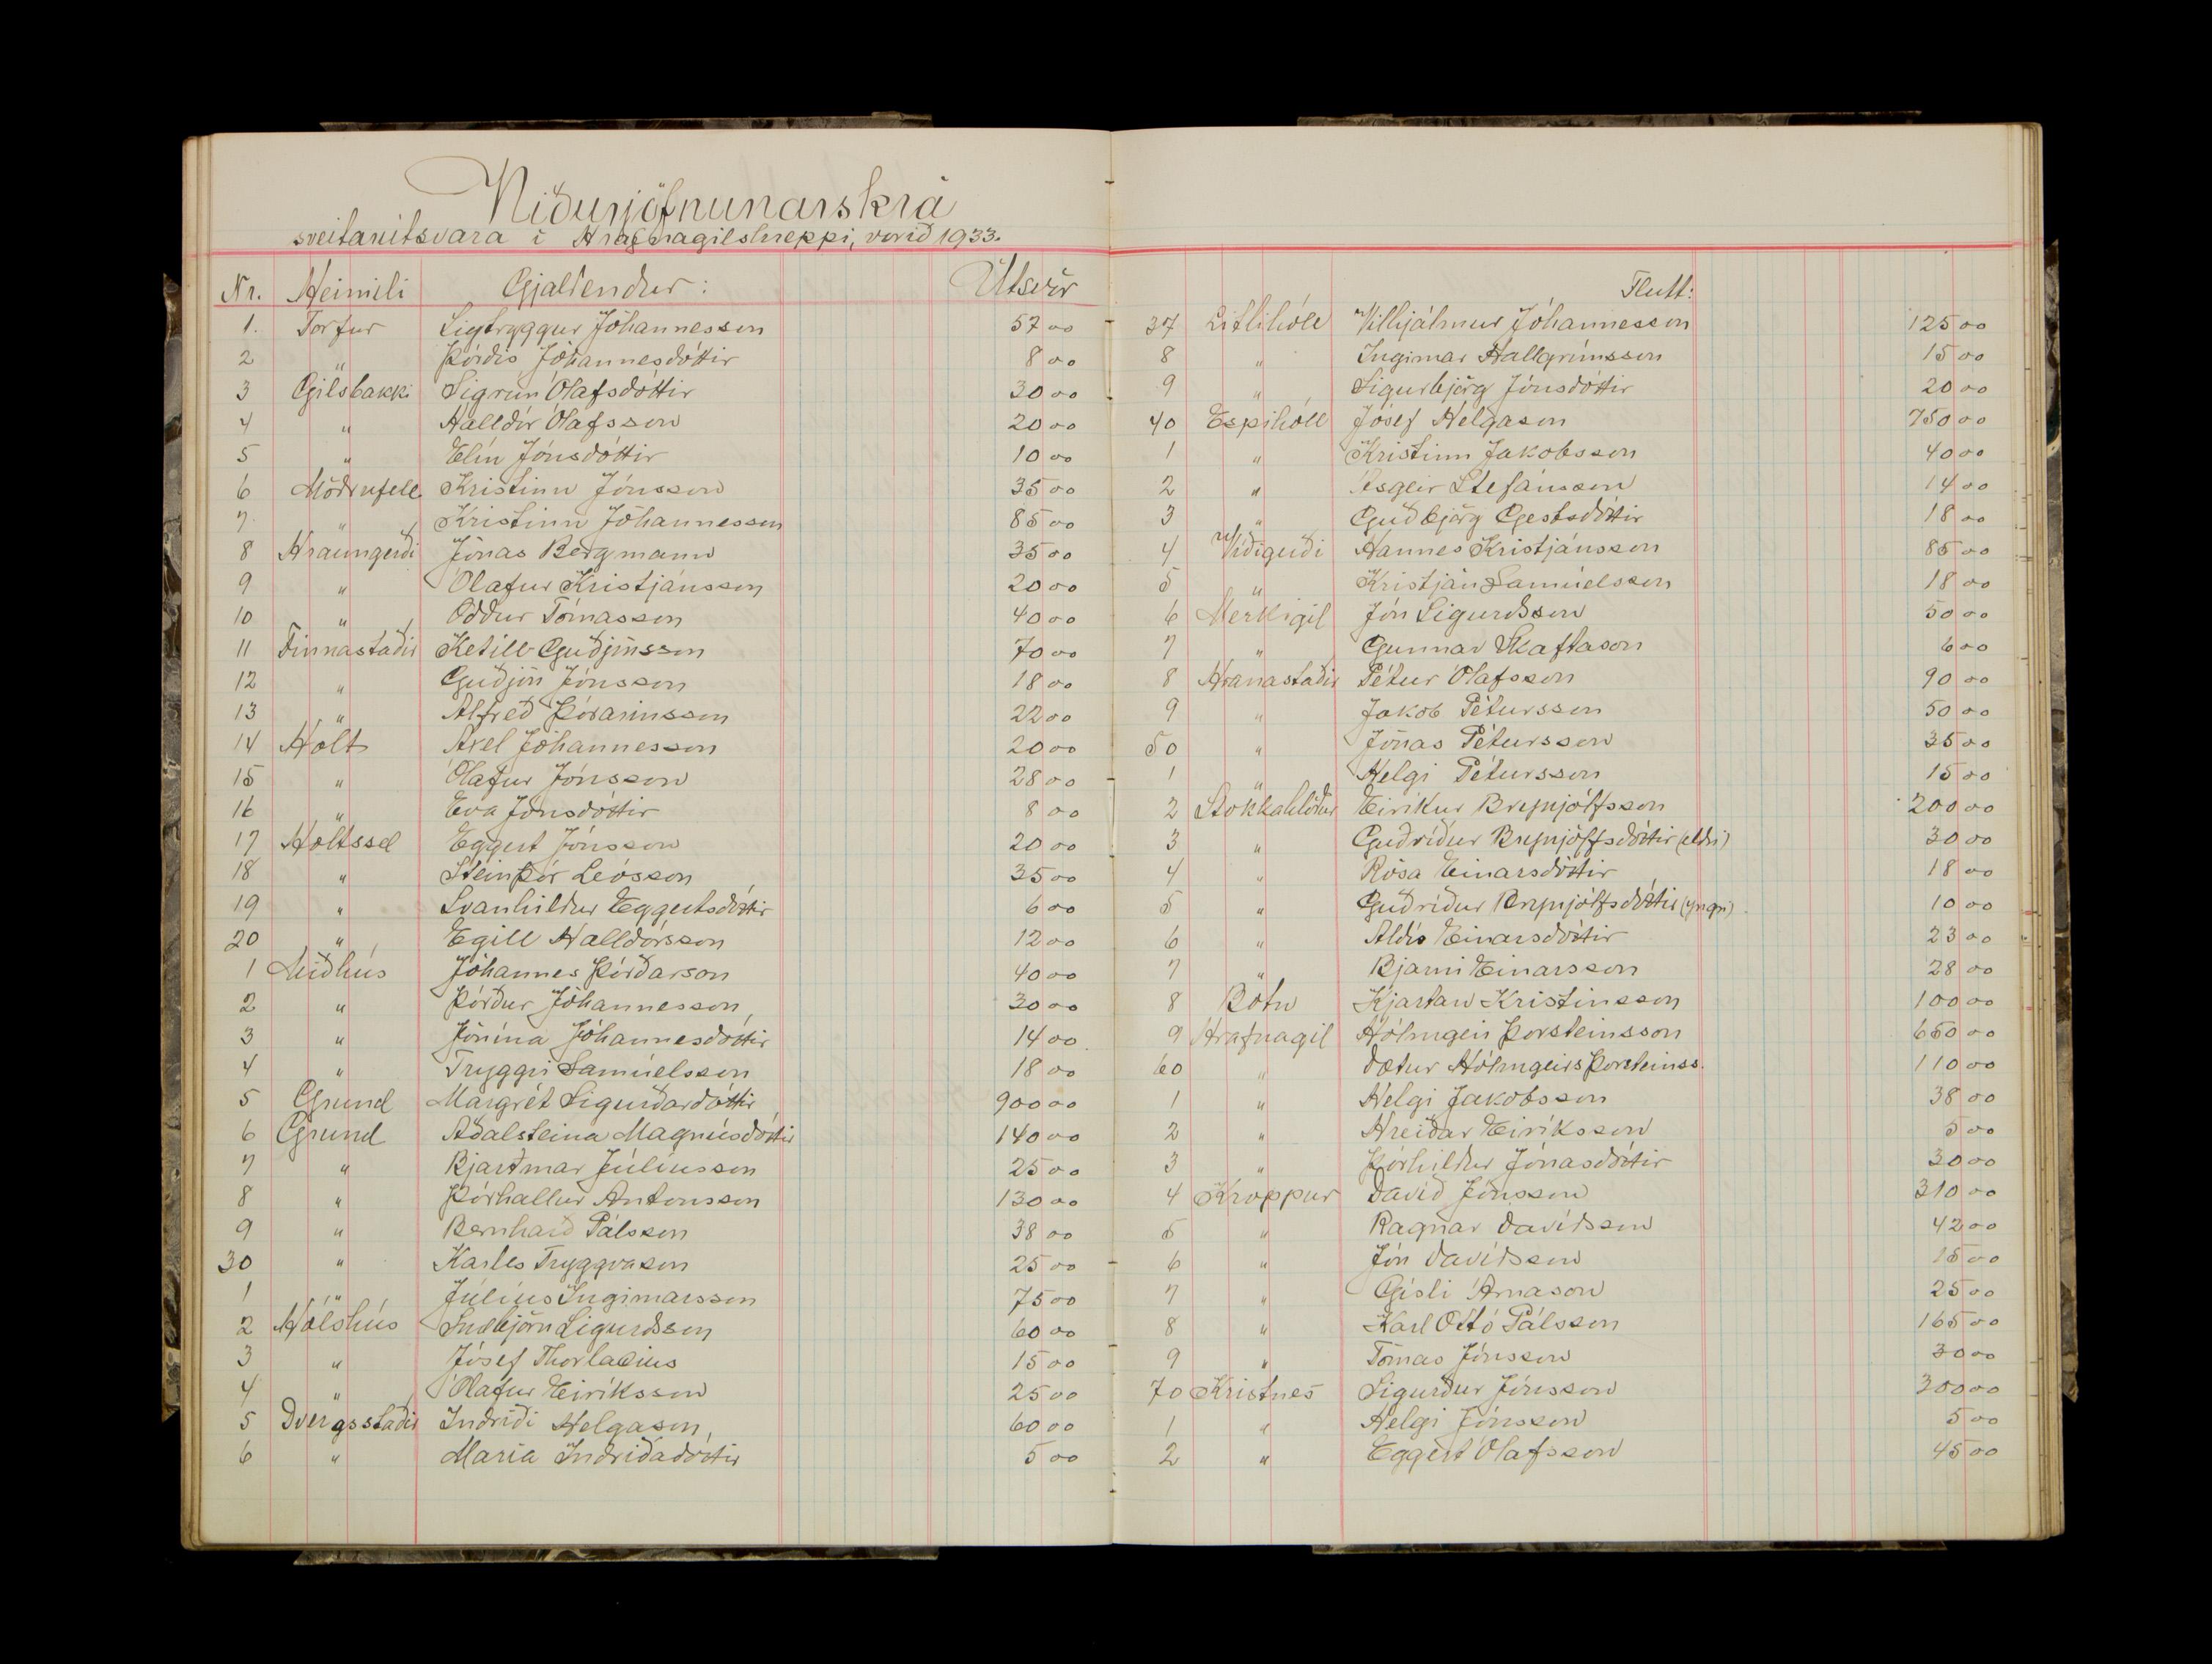 Niðurjöfnunarskrá
sveitarútsvara í Hrafnagilshreppi, vorið 1933.
Nr. Heimili Gjaldendur: Útsvör
1. Torfur Sigtryggur Jóhannesson 57 00
2 " Þórdís Jóhannesdóttir 8 00
3 Gilsbakki Sigrún Ólafsdóttir 30 00
4 " Halldór Ólafsson 20 00
5 " Elín Jónsdóttir 10 00
6 Möðrufell Kristinn Jónsson 35 00
7 " Kristinn Jóhannesson 85 00
8 Hraungerði Jónas Bergmann 35 00
9 " Ólafur Kristjánsson 20 00
10 " Oddur Tómasson 40 00
11 Finnastaðir Ketill Guðjónsson 70 00
12 " Guðjón Jónsson 18 00
13 " Alfreð Þórarinsson 22 00
14 Holt Axel Jóhannesson 20 00
15 " Ólafur Jónsson 28 00
16 " Eva Jónsdóttir 8 00
17 Holtssel Eggert Jónsson 20 00
18 " Steinþór Leósson 35 00
19 " Svanhildur Eggertsdóttir 6 00
20 " Egill Halldórsson 12 00
1 Miðhús Jóhannes Þórðarson 40 00
2 " Þórður Jóhannesson 30 00
3 " Jónína Jóhannesdóttir 14 00
4 " Tryggvi Samúelsson 18 00
5 Grund Margrét Sigurðardóttir 900 00
6 Grund Aðalsteina Magnúsdóttir 140 00
7 " Bjartmar Júlíusson 25 00
8 " Þórhallur Antonsson 130 00
9 " Bernharð Pálsson 38 00
30 " Karles Tryggvason 25 00
1 " Júlíus Ingimarsson 75 00
2 Hólshús Snæbjörn Sigurðsson 60 00
3 " Jósef Thorlacius 15 00
4 " Ólafur Eiríksson 25 00
5 Dvergsstaðir Indriði Helgason 60 00
6 " María Indriðadóttir 5 00
Flutt:
37 Litlihóll Vilhjálmur Jóhannesson 125 00
8 " Ingimar Hallgrímsson 15 00
9 " Sigurbjörg Jónsdóttir 20 00
40 Espihóll Jósef Helgason 750 00
1 " Kristinn Jakobsson 40 00
2 " Ásgeir Stefánsson 14 00
3 " Guðbjörg Gestsdóttir 18 00
4 Víðigerði Hannes Kristjánsson 85 00
5 " Kristján Samúelsson 18 00
6 Merkigil Jón Sigurðsson 50 00
7 " Gunnar Skaftason 6 00
8 Hranastaðir Pétur Ólafsson 90 00
9 " Jakob Pétursson 50 00
50 " Jónas Pétursson 35 00
1 " Helgi Pétursson 15 00
2 Stokkahlöður Eiríkur Brynjólfsson 200 00
3 " Guðríður Brynjólfsdóttir (eldri) 30 00
4 " Rósa Einarsdóttir 18 00
5 " Guðríður Brynjólfsdóttir (yngri) 10 00
6 " Aldís Einarsdóttir 23 00
7 " Bjarni Einarsson 28 00
8 Botn Kjartan Kristinsson 100 00
9 Hrafnagil Hólmgeir Þorsteinsson 650 00
60 " Dætur Hólmgeirs Þorsteinss. 110 00
1 " Helgi Jakobsson 38 00
2 " Hreiðar Eiríksson 5 00
3 " Þórhildur Jónasdóttir 30 00
4 Kroppur Davíð Jónsson 310 00
5 " Ragnar Davíðsson 42 00
6 " Jón Davíðsson 15 00
7 " Gísli Árnason 25 00
8 " Karl Ottó Pálsson 165 00
9 " Tómas Jónsson 30 00
70 Kristnes Sigurður Jónsson 300 00
1 " Helgi Jónsson 5 00
2 " Eggert Ólafsson 45 00